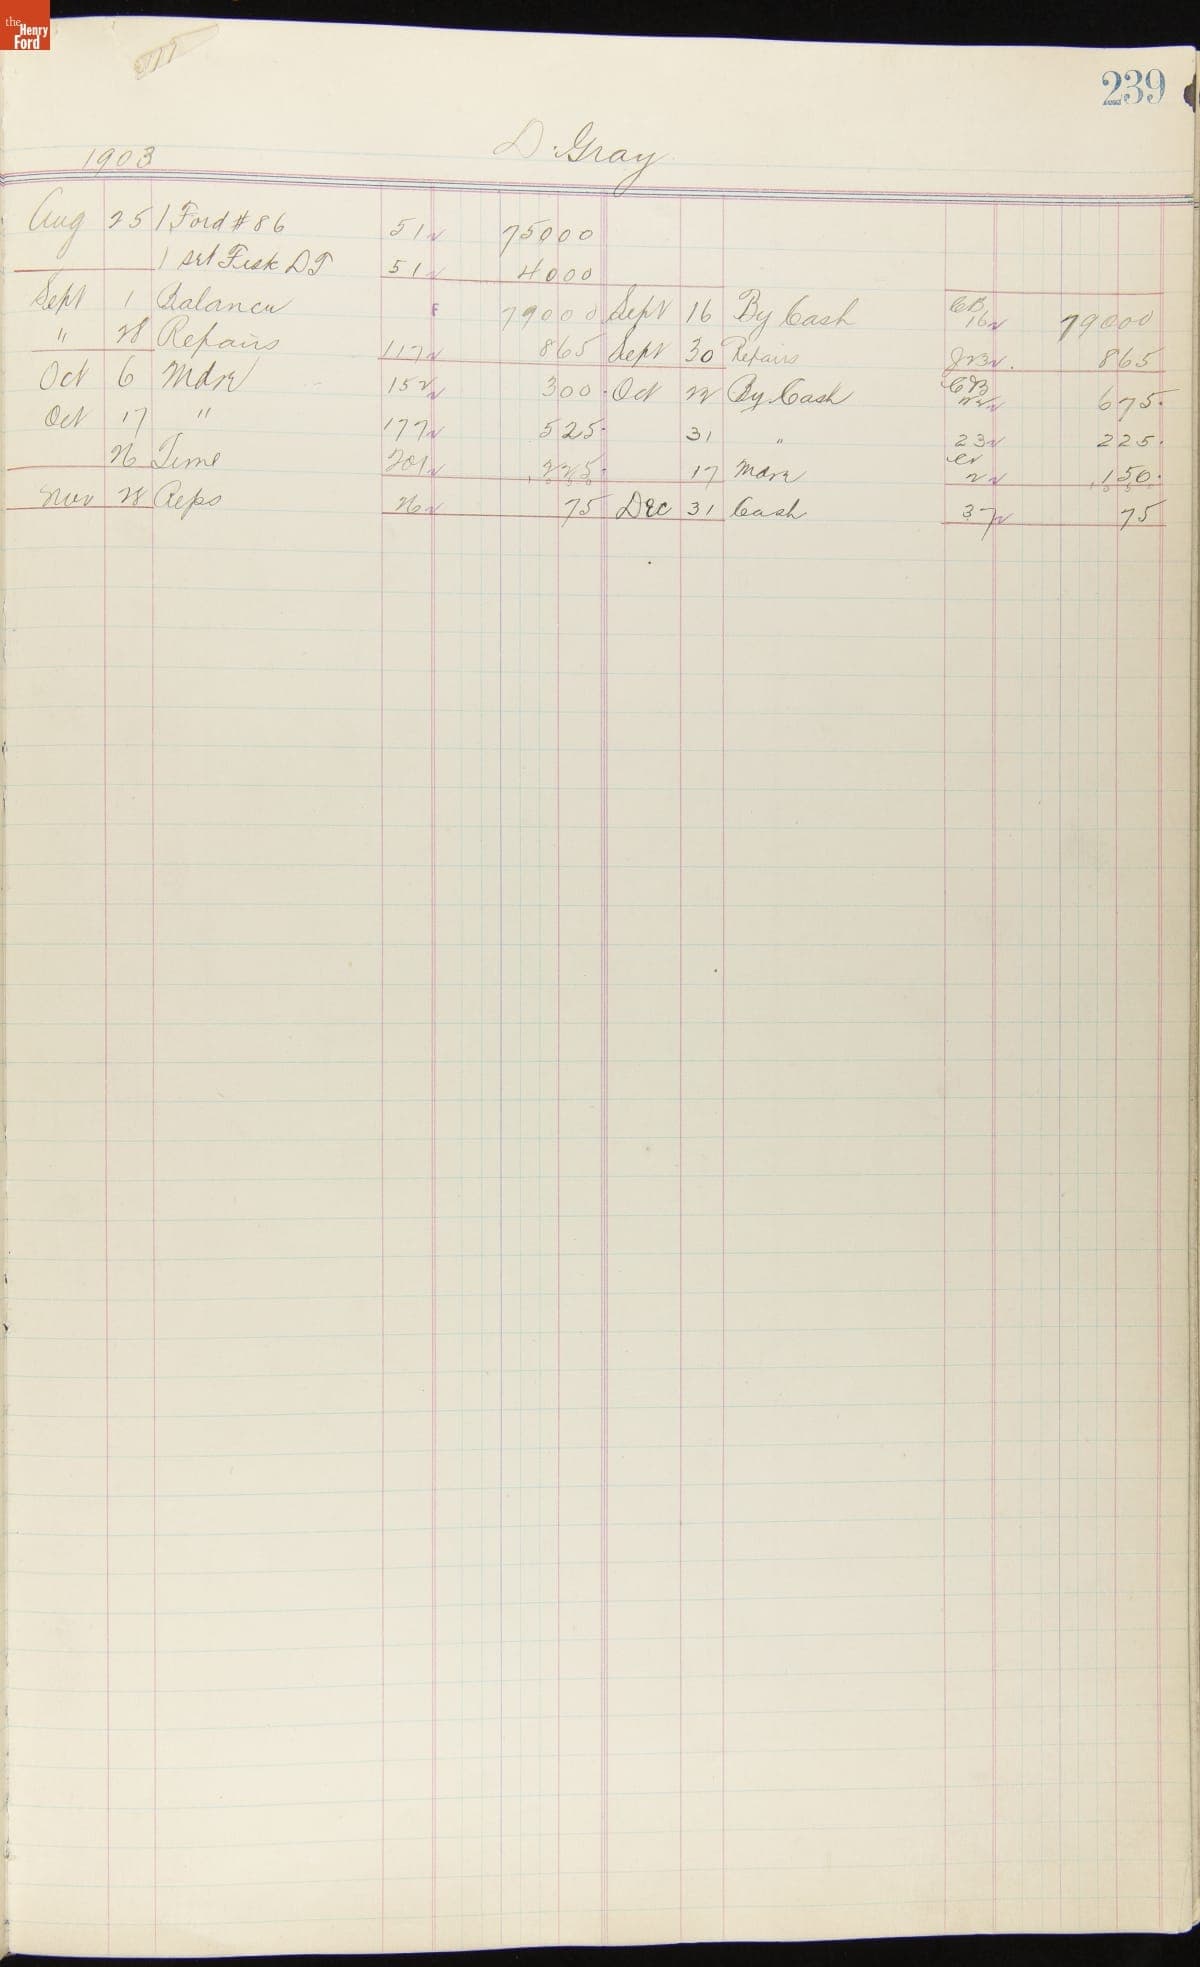 the Henry Ford
239
D. Gray
1903
Aug 25 1 Ford #86 51 75000
1 set Fisk DT 51 4000
Sept 1 Balance F 79000 Sept 16 By Cash CB 16 79000
" 28 Repairs 117 865 Sept 30 Repairs 865
Oct 6 Mdse 152 300 Oct 22 By Cash CB 22 675
Oct 17 " 177 525 31 " 23 225
26 Time 201 225 17 Mdse 2 150
1050 1050
Nov 28 Reps 26 75 Dec 31 Cash 37 75